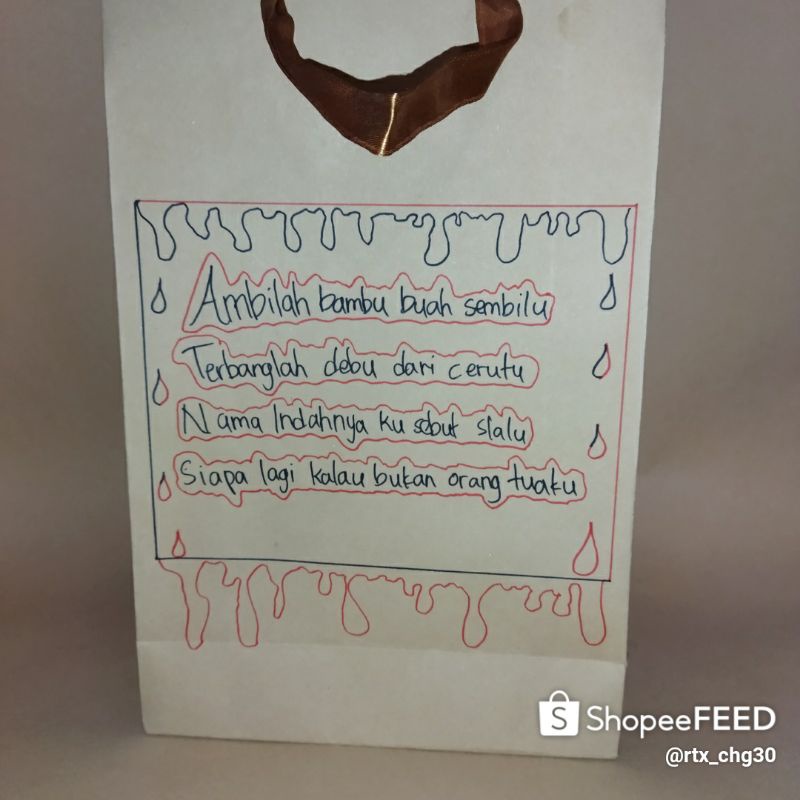 Ambilah bambu buah sembilu
Terbanglah debu dari cerutu
Nama Indahnya ku sebut slalu
Siapa lagi kalau bukan orang tuaku
ShopeeFEED
@rtx_chg30